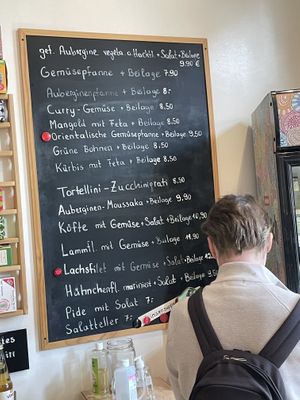 gef. Aubergine vegeta. o. Hackfl. + Salat + Beilage
9.90 €
Gemüsepfanne + Beilage 7.90
Auberginenpfanne + Beilage 8.-
Curry - Gemüse + Beilage 8.50
Mangold mit Feta + Beilage 8.50
Orientalische Gemüsepfanne + Beilage 9,50
Grüne Bohnen + Beilage 8.50
Kürbis mit Feta + Beilage 8.50
Tortellini - Zucchinigrati 8.50
Auberginen - Moussaka + Beilage 9.90
Köfte mit Gemüse + Salat + Beilage 10,90
Lammfl. mit Gemüse + Beilage 11.90
Lachsfilet mit Gemüse + Salat + Beilage
Hähnchenfl. mariniert + Salat + Beilage 9.50
Pide mit Salat 7:
Salatteller 7: